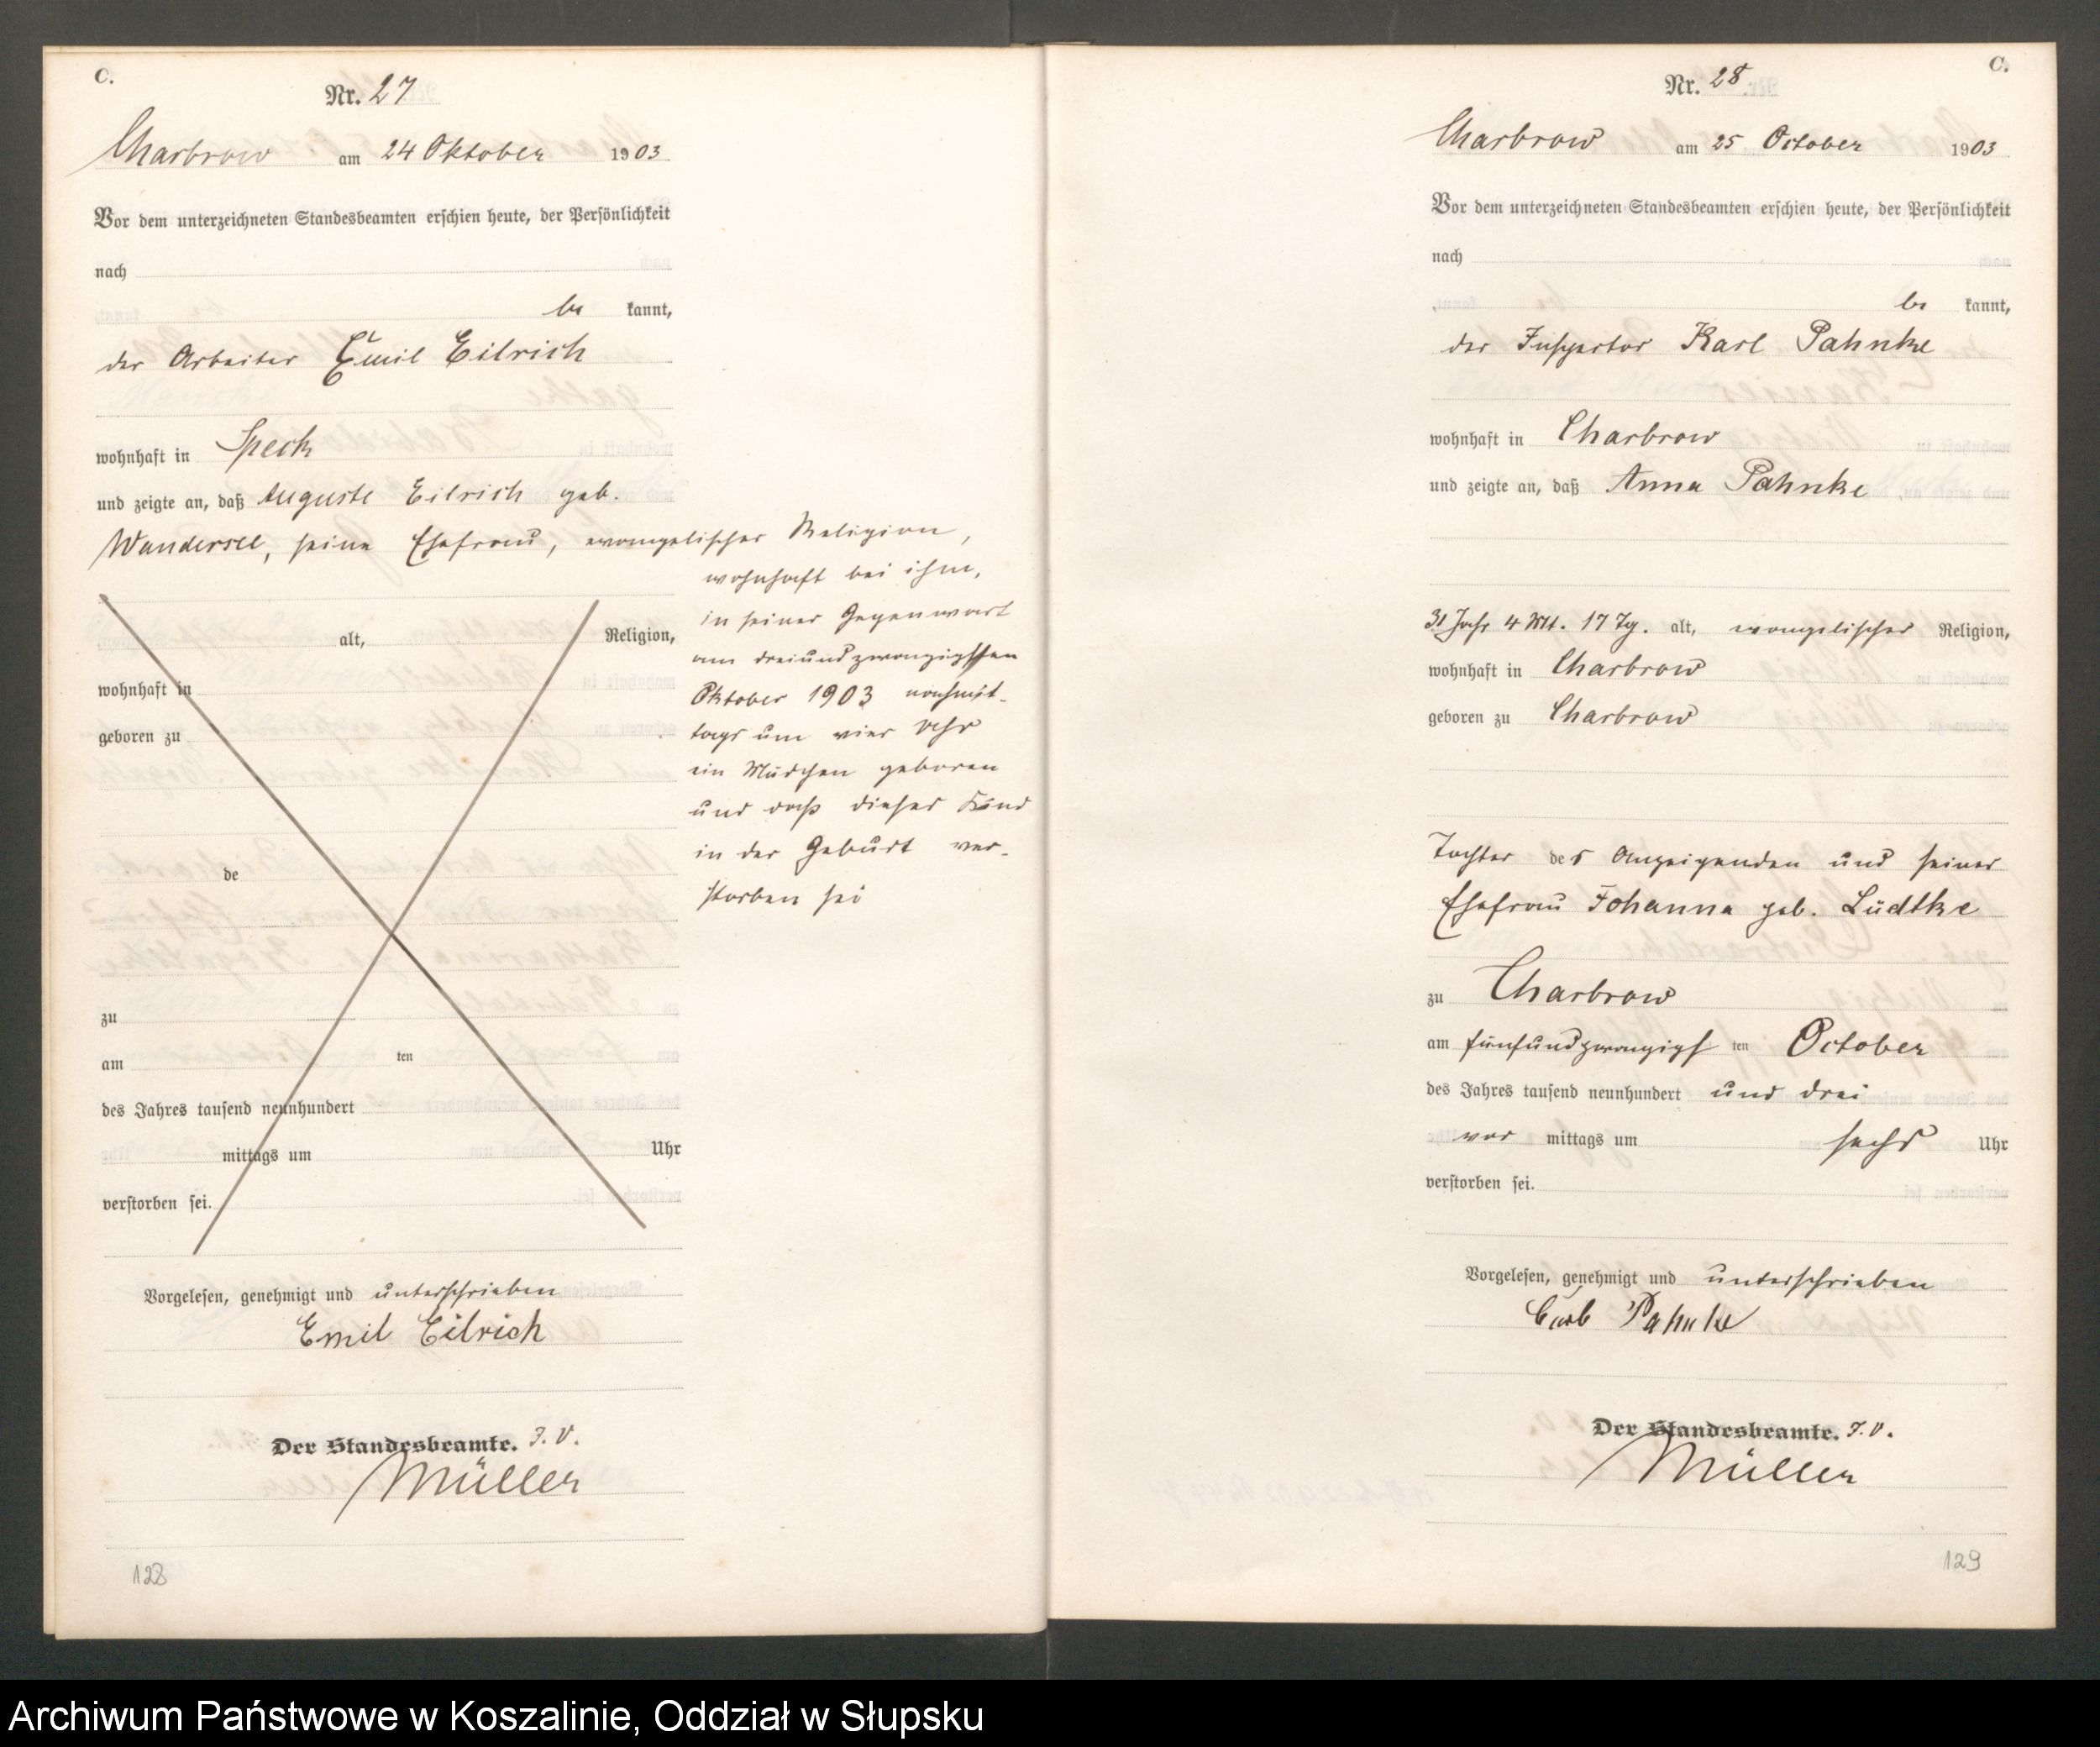 C.
Nr. 27
Charbrow am 24 Oktober 1903
Vor dem unterzeichneten Standesbeamten erschien heute, der Persönlichkeit
nach
be kannt,
der Arbeiter Emil Eilrich
wohnhaft in Speck
und zeigte an, daß Auguste Eilrich geb.
Wandersee, seine Ehefrau, evangelischer Religion,
wohnhaft bei ihm,
in seiner Gegenwart
am dreiundzwanzigsten
Oktober 1903 nachmit-
tags um vier Uhr
ein Mädchen geboren
und daß dieses Kind
in der Geburt ver-
storben sei
alt, Religion,
wohnhaft in
geboren zu
de
zu
am ten
des Jahres tausend neunhundert
mittags um Uhr
verstorben sei.
Vorgelesen, genehmigt und unterschrieben
Emil Eilrich
Der Standesbeamte. I. V.
Müller
128
C.
Nr. 28
Charbrow am 25 October 1903
Vor dem unterzeichneten Standesbeamten erschien heute, der Persönlichkeit
nach
be kannt,
der Inspector Karl Pahnke
wohnhaft in Charbrow
und zeigte an, daß Anna Pahnke
31 Jahr 4 Mt. 17 Tg. alt, evangelischer Religion,
wohnhaft in Charbrow
geboren zu Charbrow
Tochter des Anzeigenden und seiner
Ehefrau Johanna geb. Lüdtke
zu Charbrow
am fünfundzwanzigs ten October
des Jahres tausend neunhundert und drei
vor mittags um sechs Uhr
verstorben sei.
Vorgelesen, genehmigt und unterschrieben
Carl Pahnke
Der Standesbeamte. I. V.
Müller
129
Archiwum Państwowe w Koszalinie, Oddział w Słupsku